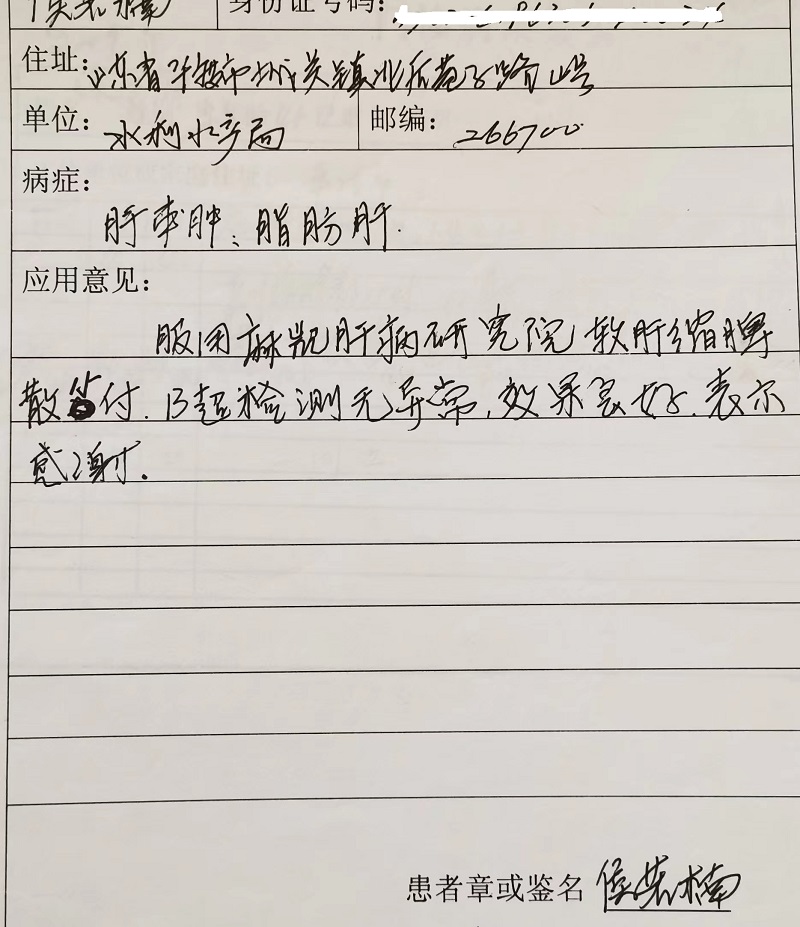 身份证号码:
住址: 山东省平度市城关镇北后巷子路山号
单位: 水利水产局 邮编: 266700
病症:
肝囊肿、脂肪肝.
应用意见:
服用麻觊肝病研究院软肝缩脾
散 付. B超检测无异常, 效果良好. 表示
感谢.
患者章或鉴名 侯若楠